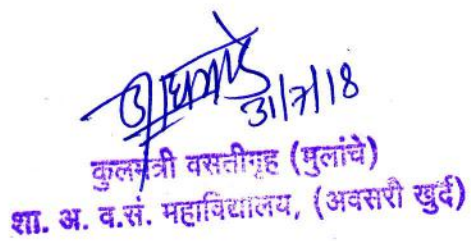 31/7/18
कुलमंत्री वसतीगृह (मुलांचे)
शा. अ. व.सं. महाविद्यालय, (अवसरी खुर्द)